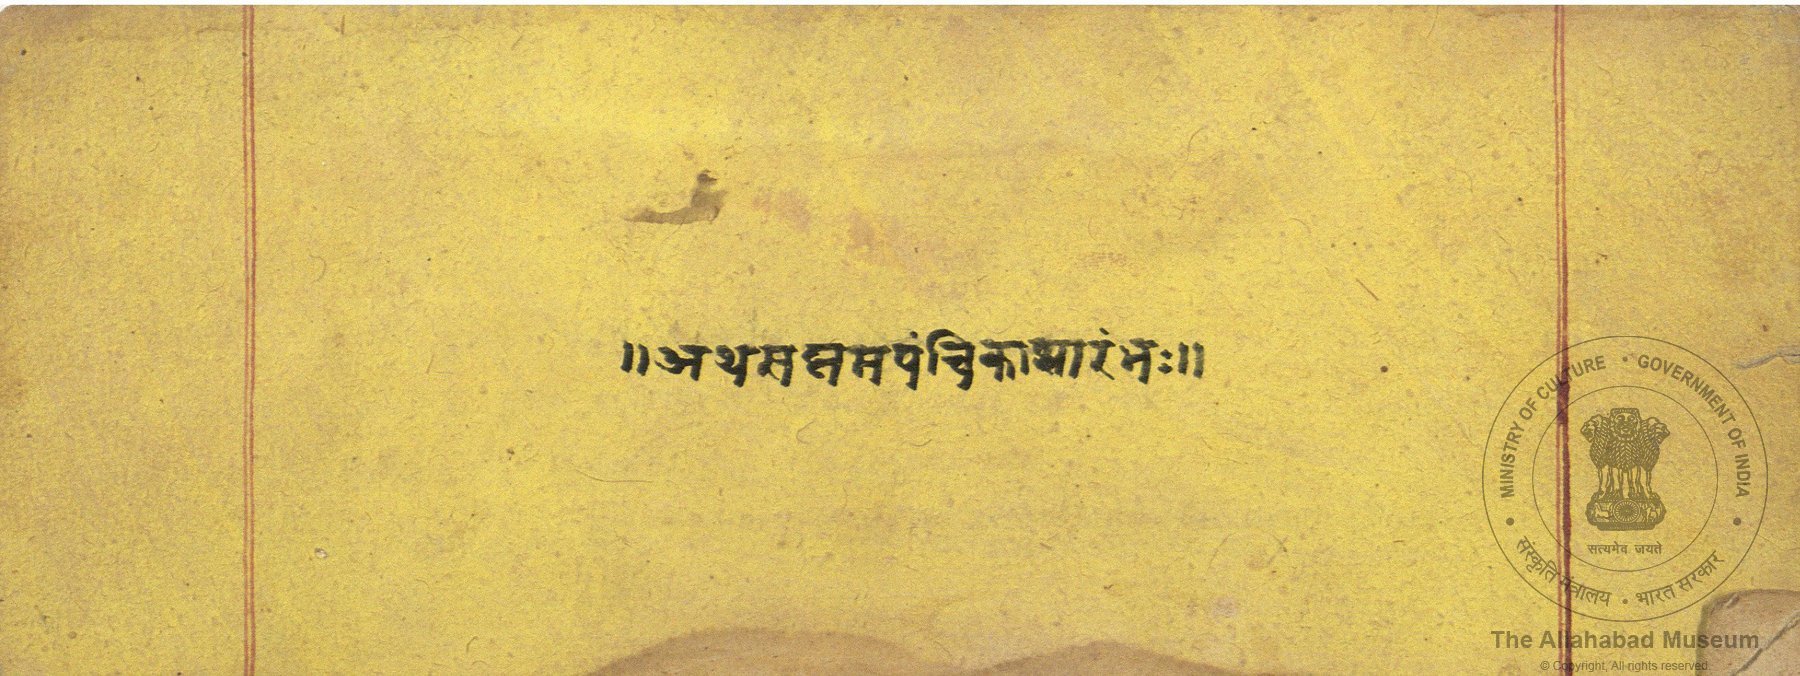 ॥अथसप्तमपंचिकाप्रारंभः॥
MINISTRY OF CULTURE • GOVERNMENT OF INDIA
सत्यमेव जयते
संस्कृति मंत्रालय • भारत सरकार
The Allahabad Museum
© Copyright, All rights reserved.